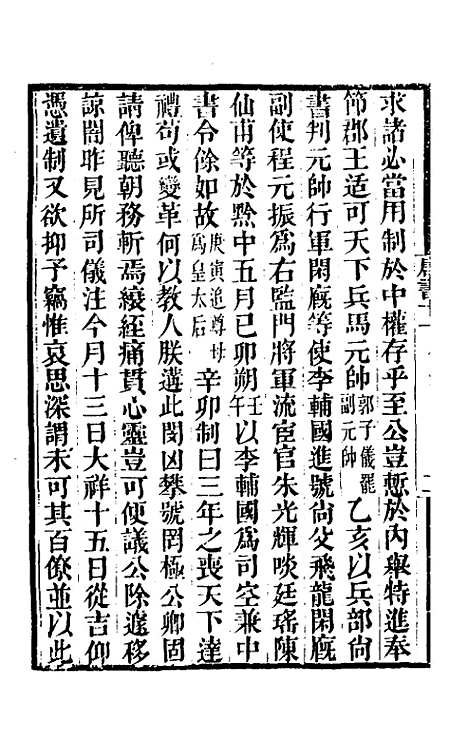 求諸必當用制於中權存乎至公豈慙於內舉特進奉
節郡王适可天下兵馬元帥郭子儀罷副元帥乙亥以兵部尚
書判元帥行軍閑廐等使李輔國進號尚父飛龍閑廐
副使程元振爲右監門將軍流宦官朱光輝啖廷瑤陳
仙甫等於黔中五月己卯朔壬午以李輔國爲司空兼中
書令餘如故庚寅追尊母爲皇太后辛卯制曰三年之喪天下達
禮苟或變革何以教人朕遘此閔凶攀號罔極公卿固
請俾聽朝務斬焉縗絰痛貫心靈豈可便議公除遽移
諒闇昨見所司儀注今月十三日大祥十五日從吉仰
憑遺制又欲抑予竊惟哀思深謂未可其百僚並以此